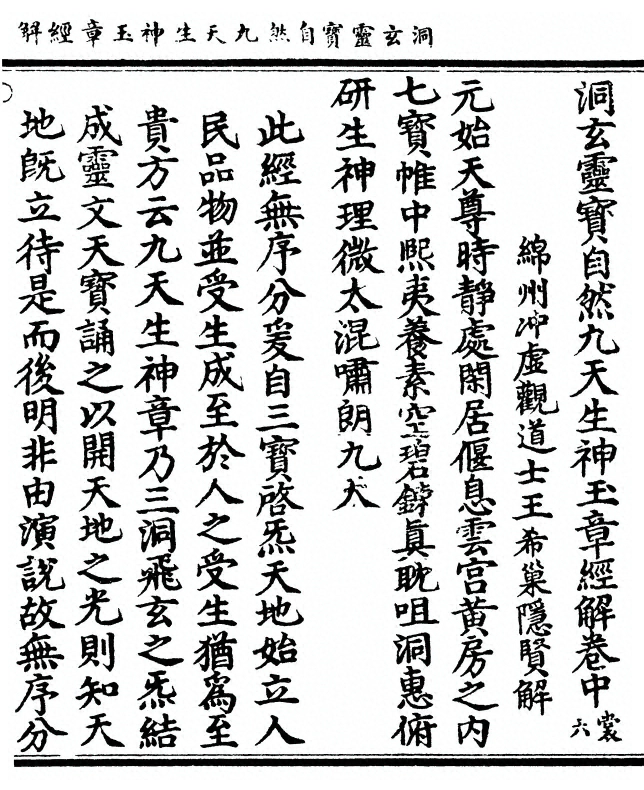 洞玄靈寶自然九天生神玉章經解
洞玄靈寶自然九天生神玉章經解卷中 裳六
綿州冲虛觀道士王希巢隱賢解
元始天尊時靜處閑居偃息雲宮黃房之內
七寶帷中熙夷養素空碧鍊眞耽咀洞惠俯
研生神理微太混嘯朗九大
此經無序分爰自三寶啓炁天地始立人
民品物並受生成至於人之受生猶爲至
貴方云九天生神章乃三洞飛玄之炁結
成靈文天寶誦之以開天地之光則知天
地旣立待是而後明非由演說故無序分